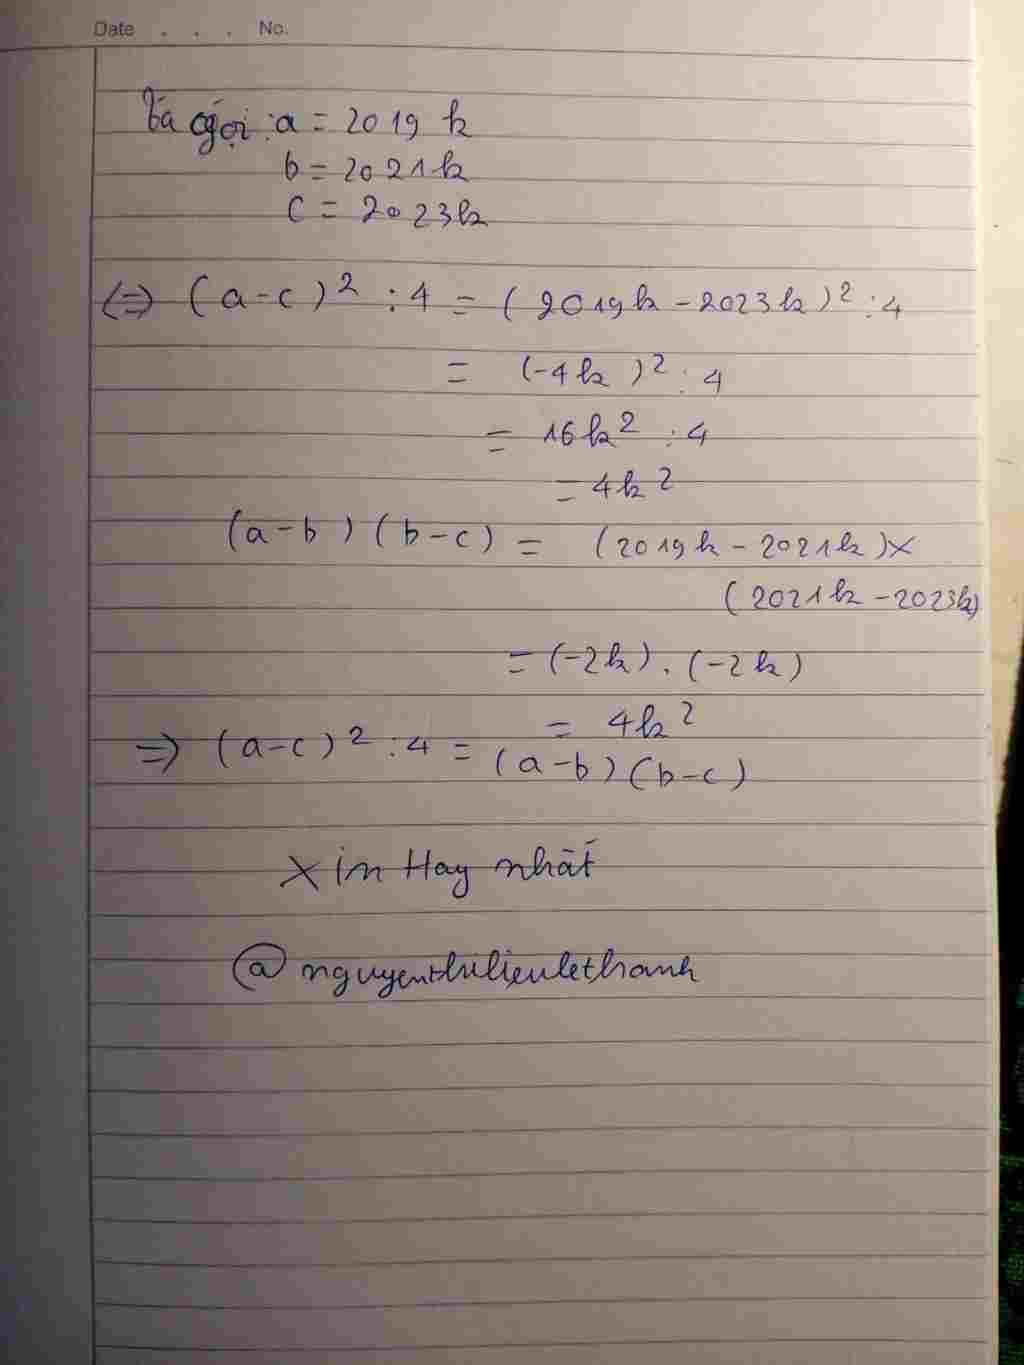 Date . . . No.
Ta gọi : a = 2019 k
b = 2021k
c = 2023k
(=) (a-c)² : 4 = (2019k - 2023k)² : 4
= (-4k)² : 4
= 16k² : 4
= 4k²
(a-b)(b-c) = (2019k - 2021k)×
(2021k - 2023k)
= (-2k) . (-2k)
= 4k²
=> (a-c)² : 4 = (a-b)(b-c)
Xin Hay nhất
@nguyenthilieulethanh